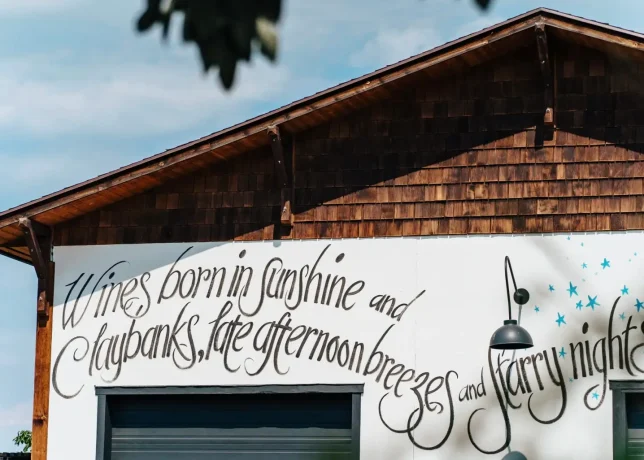 Wines born in Sunshine and
Claybanks, late afternoon breezes and Starry nights